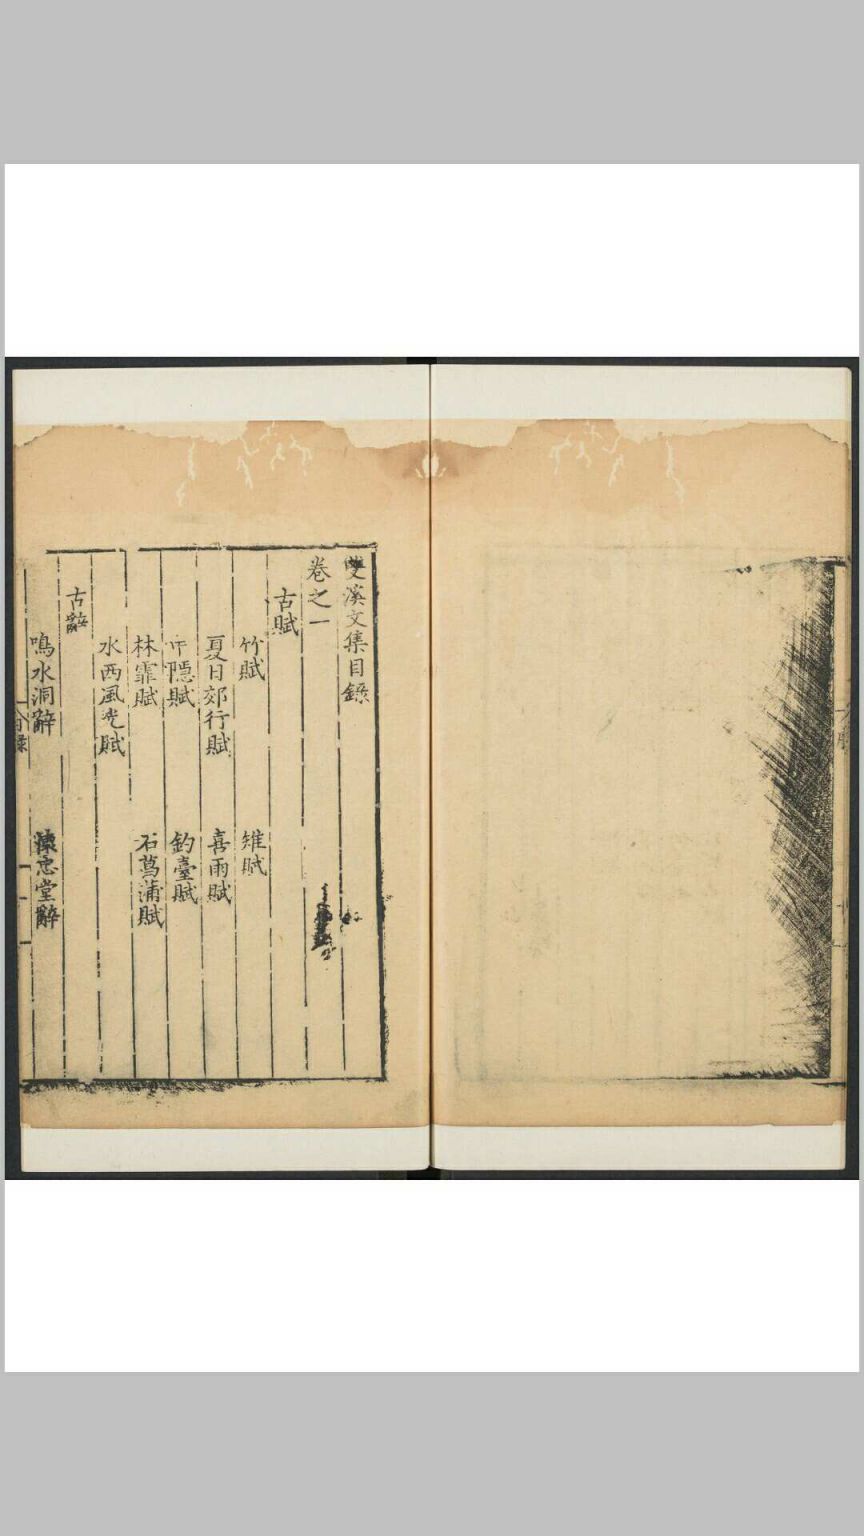 雙溪文集目錄
卷之一
古賦
竹賦　雉賦
夏日郊行賦　喜雨賦
隱賦　釣臺賦
林霏賦　石菖蒲賦
水西風光賦
古辭
鳴水洞辭　懷忠堂辭
目錄